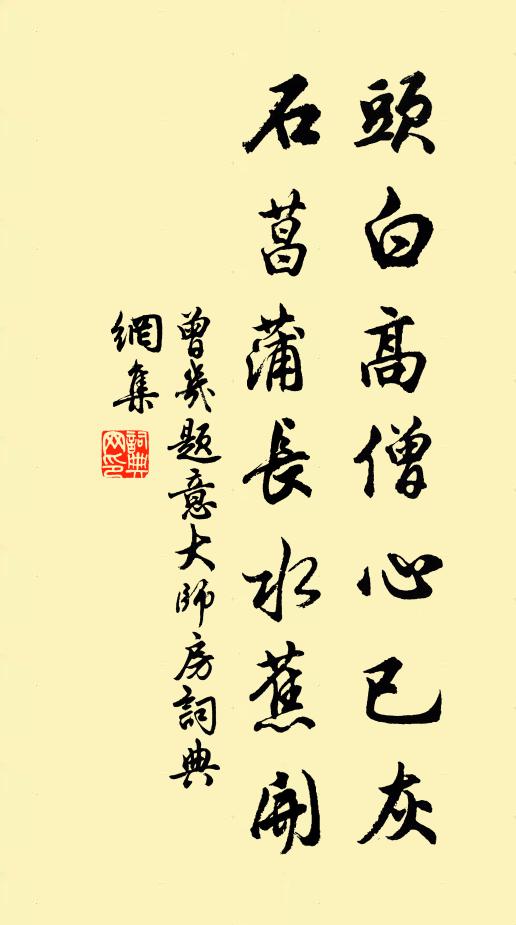 頭白高僧心已灰
石菖蒲長水蕉開
曾幾題意大師房詞典
網集
詞典網印